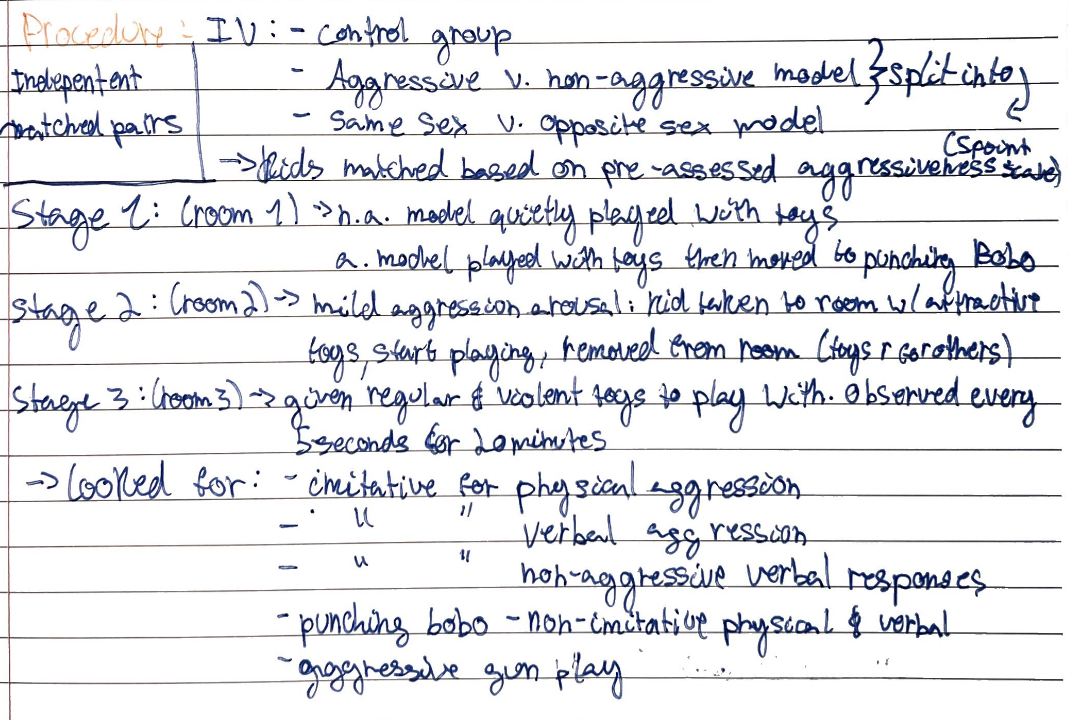 Procedure: IV: - control group
Indepentent - Aggressive v. non-aggressive model } split into
matched pairs - Same sex v. opposite sex model
→ kids matched based on pre-assessed aggressiveness (5point scale)
Stage 1: (room 1) → n.a. model quietly played with toys
a. model played with toys then moved to punching Bobo
Stage 2: (room 2) → mild aggression arousal: kid taken to room w/ attractive
toys, start playing, removed from room (toys r for others)
Stage 3: (room 3) → given regular & violent toys to play with. Observed every
5 seconds for 20 minutes
→ looked for: - imitative for physical aggression
- " " verbal aggression
- " " non-aggressive verbal responses
- punching bobo - non-imitative physical & verbal
- aggressive gun play